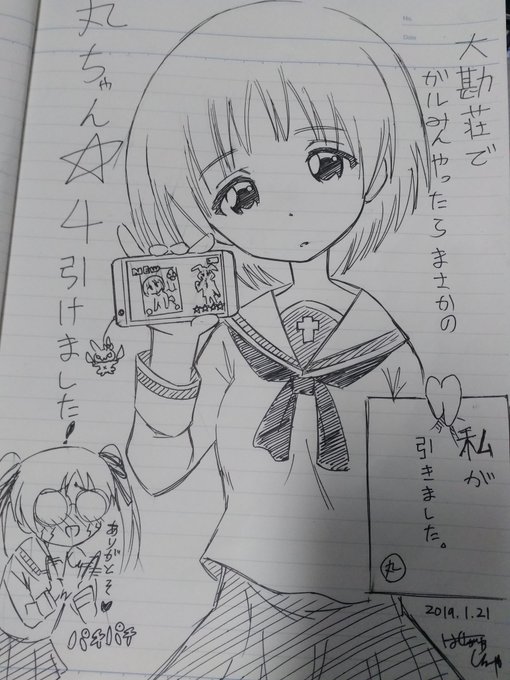 No.
Date
大勘荘で
ガルみんやったらまさかの
丸ちゃん☆4引けました!
New
私が
引きました。
丸
パチパチ
2019.1.21